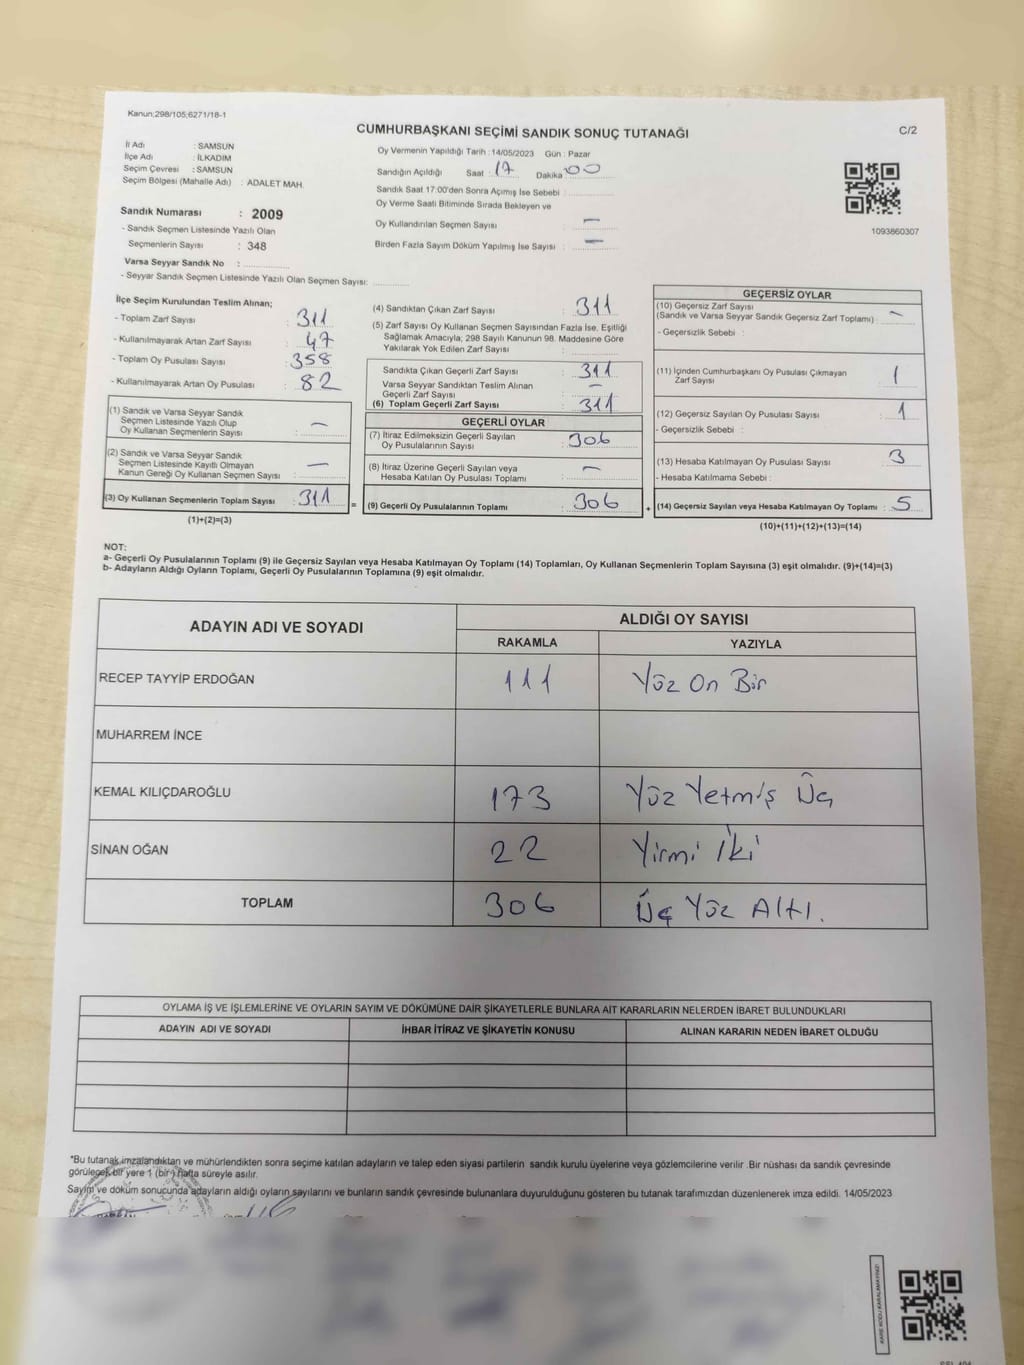 Kanun;298/105;6271/18-1
CUMHURBAŞKANI SEÇİMİ SANDIK SONUÇ TUTANAĞI
C/2
İl Adı : SAMSUN
İlçe Adı : İLKADIM
Seçim Çevresi : SAMSUN
Seçim Bölgesi (Mahalle Adı) : ADALET MAH.
Sandık Numarası : 2009
- Sandık Seçmen Listesinde Yazılı Olan
Seçmenlerin Sayısı : 348
Varsa Seyyar Sandık No :
- Seyyar Sandık Seçmen Listesinde Yazılı Olan Seçmen Sayısı:
Oy Vermenin Yapıldığı Tarih : 14/05/2023 Gün : Pazar
Sandığın Açıldığı Saat : 17 Dakika 00
Sandık Saat 17:00'den Sonra Açımış İse Sebebi :
Oy Verme Saati Bitiminde Sırada Bekleyen ve
Oy Kullandırılan Seçmen Sayısı : —
Birden Fazla Sayım Döküm Yapılmış İse Sayısı : —
1093860307
İlçe Seçim Kurulundan Teslim Alınan;
- Toplam Zarf Sayısı : 311
- Kullanılmayarak Artan Zarf Sayısı : 47
- Toplam Oy Pusulası Sayısı : 358
- Kullanılmayarak Artan Oy Pusulası : 82
(1) Sandık ve Varsa Seyyar Sandık
Seçmen Listesinde Yazılı Olup
Oy Kullanan Seçmenlerin Sayısı : —
(2) Sandık ve Varsa Seyyar Sandık
Seçmen Listesinde Kayıtlı Olmayan
Kanun Gereği Oy Kullanan Seçmen Sayısı : —
(3) Oy Kullanan Seçmenlerin Toplam Sayısı : 311
(1)+(2)=(3)
=
(4) Sandıktan Çıkan Zarf Sayısı : 311
(5) Zarf Sayısı Oy Kullanan Seçmen Sayısından Fazla İse, Eşitliği
Sağlamak Amacıyla; 298 Sayılı Kanunun 98. Maddesine Göre
Yakılarak Yok Edilen Zarf Sayısı :
Sandıkta Çıkan Geçerli Zarf Sayısı : 311
Varsa Seyyar Sandıktan Teslim Alınan
Geçerli Zarf Sayısı : —
(6) Toplam Geçerli Zarf Sayısı : 311
GEÇERLİ OYLAR
(7) İtiraz Edilmeksizin Geçerli Sayılan
Oy Pusulalarının Sayısı : 306
(8) İtiraz Üzerine Geçerli Sayılan veya
Hesaba Katılan Oy Pusulası Toplamı : —
(9) Geçerli Oy Pusulalarının Toplamı : 306
+
GEÇERSİZ OYLAR
(10) Geçersiz Zarf Sayısı
(Sandık ve Varsa Seyyar Sandık Geçersiz Zarf Toplamı) : —
- Geçersizlik Sebebi :
(11) İçinden Cumhurbaşkanı Oy Pusulası Çıkmayan
Zarf Sayısı : 1
(12) Geçersiz Sayılan Oy Pusulası Sayısı : 1
- Geçersizlik Sebebi :
(13) Hesaba Katılmayan Oy Pusulası Sayısı : 3
- Hesaba Katılmama Sebebi :
(14) Geçersiz Sayılan veya Hesaba Katılmayan Oy Toplamı : 5
(10)+(11)+(12)+(13)=(14)
NOT:
a- Geçerli Oy Pusulalarının Toplamı (9) ile Geçersiz Sayılan veya Hesaba Katılmayan Oy Toplamı (14) Toplamları, Oy Kullanan Seçmenlerin Toplam Sayısına (3) eşit olmalıdır. (9)+(14)=(3)
b- Adayların Aldığı Oyların Toplamı, Geçerli Oy Pusulalarının Toplamına (9) eşit olmalıdır.
ADAYIN ADI VE SOYADI
ALDIĞI OY SAYISI
RAKAMLA YAZIYLA
RECEP TAYYİP ERDOĞAN 111 Yüz On Bir
MUHARREM İNCE
KEMAL KILIÇDAROĞLU 173 Yüz Yetmiş Üç
SİNAN OĞAN 22 Yirmi İki
TOPLAM 306 Üç Yüz Altı.
OYLAMA İŞ VE İŞLEMLERİNE VE OYLARIN SAYIM VE DÖKÜMÜNE DAİR ŞİKAYETLERLE BUNLARA AİT KARARLARIN NELERDEN İBARET BULUNDUKLARI
ADAYIN ADI VE SOYADI İHBAR İTİRAZ VE ŞİKAYETİN KONUSU ALINAN KARARIN NEDEN İBARET OLDUĞU
*Bu tutanak imzalandıktan ve mühürlendikten sonra seçime katılan adayların ve talep eden siyasi partilerin sandık kurulu üyelerine veya gözlemcilerine verilir .Bir nüshası da sandık çevresinde
görülecek bir yere 1 (bir) hafta süreyle asılır.
Sayım ve döküm sonucunda adayların aldığı oyların sayılarını ve bunların sandık çevresinde bulunanlara duyurulduğunu gösteren bu tutanak tarafımızdan düzenlenerek imza edildi. 14/05/2023
KARE KODU KARALAMAYINIZ!